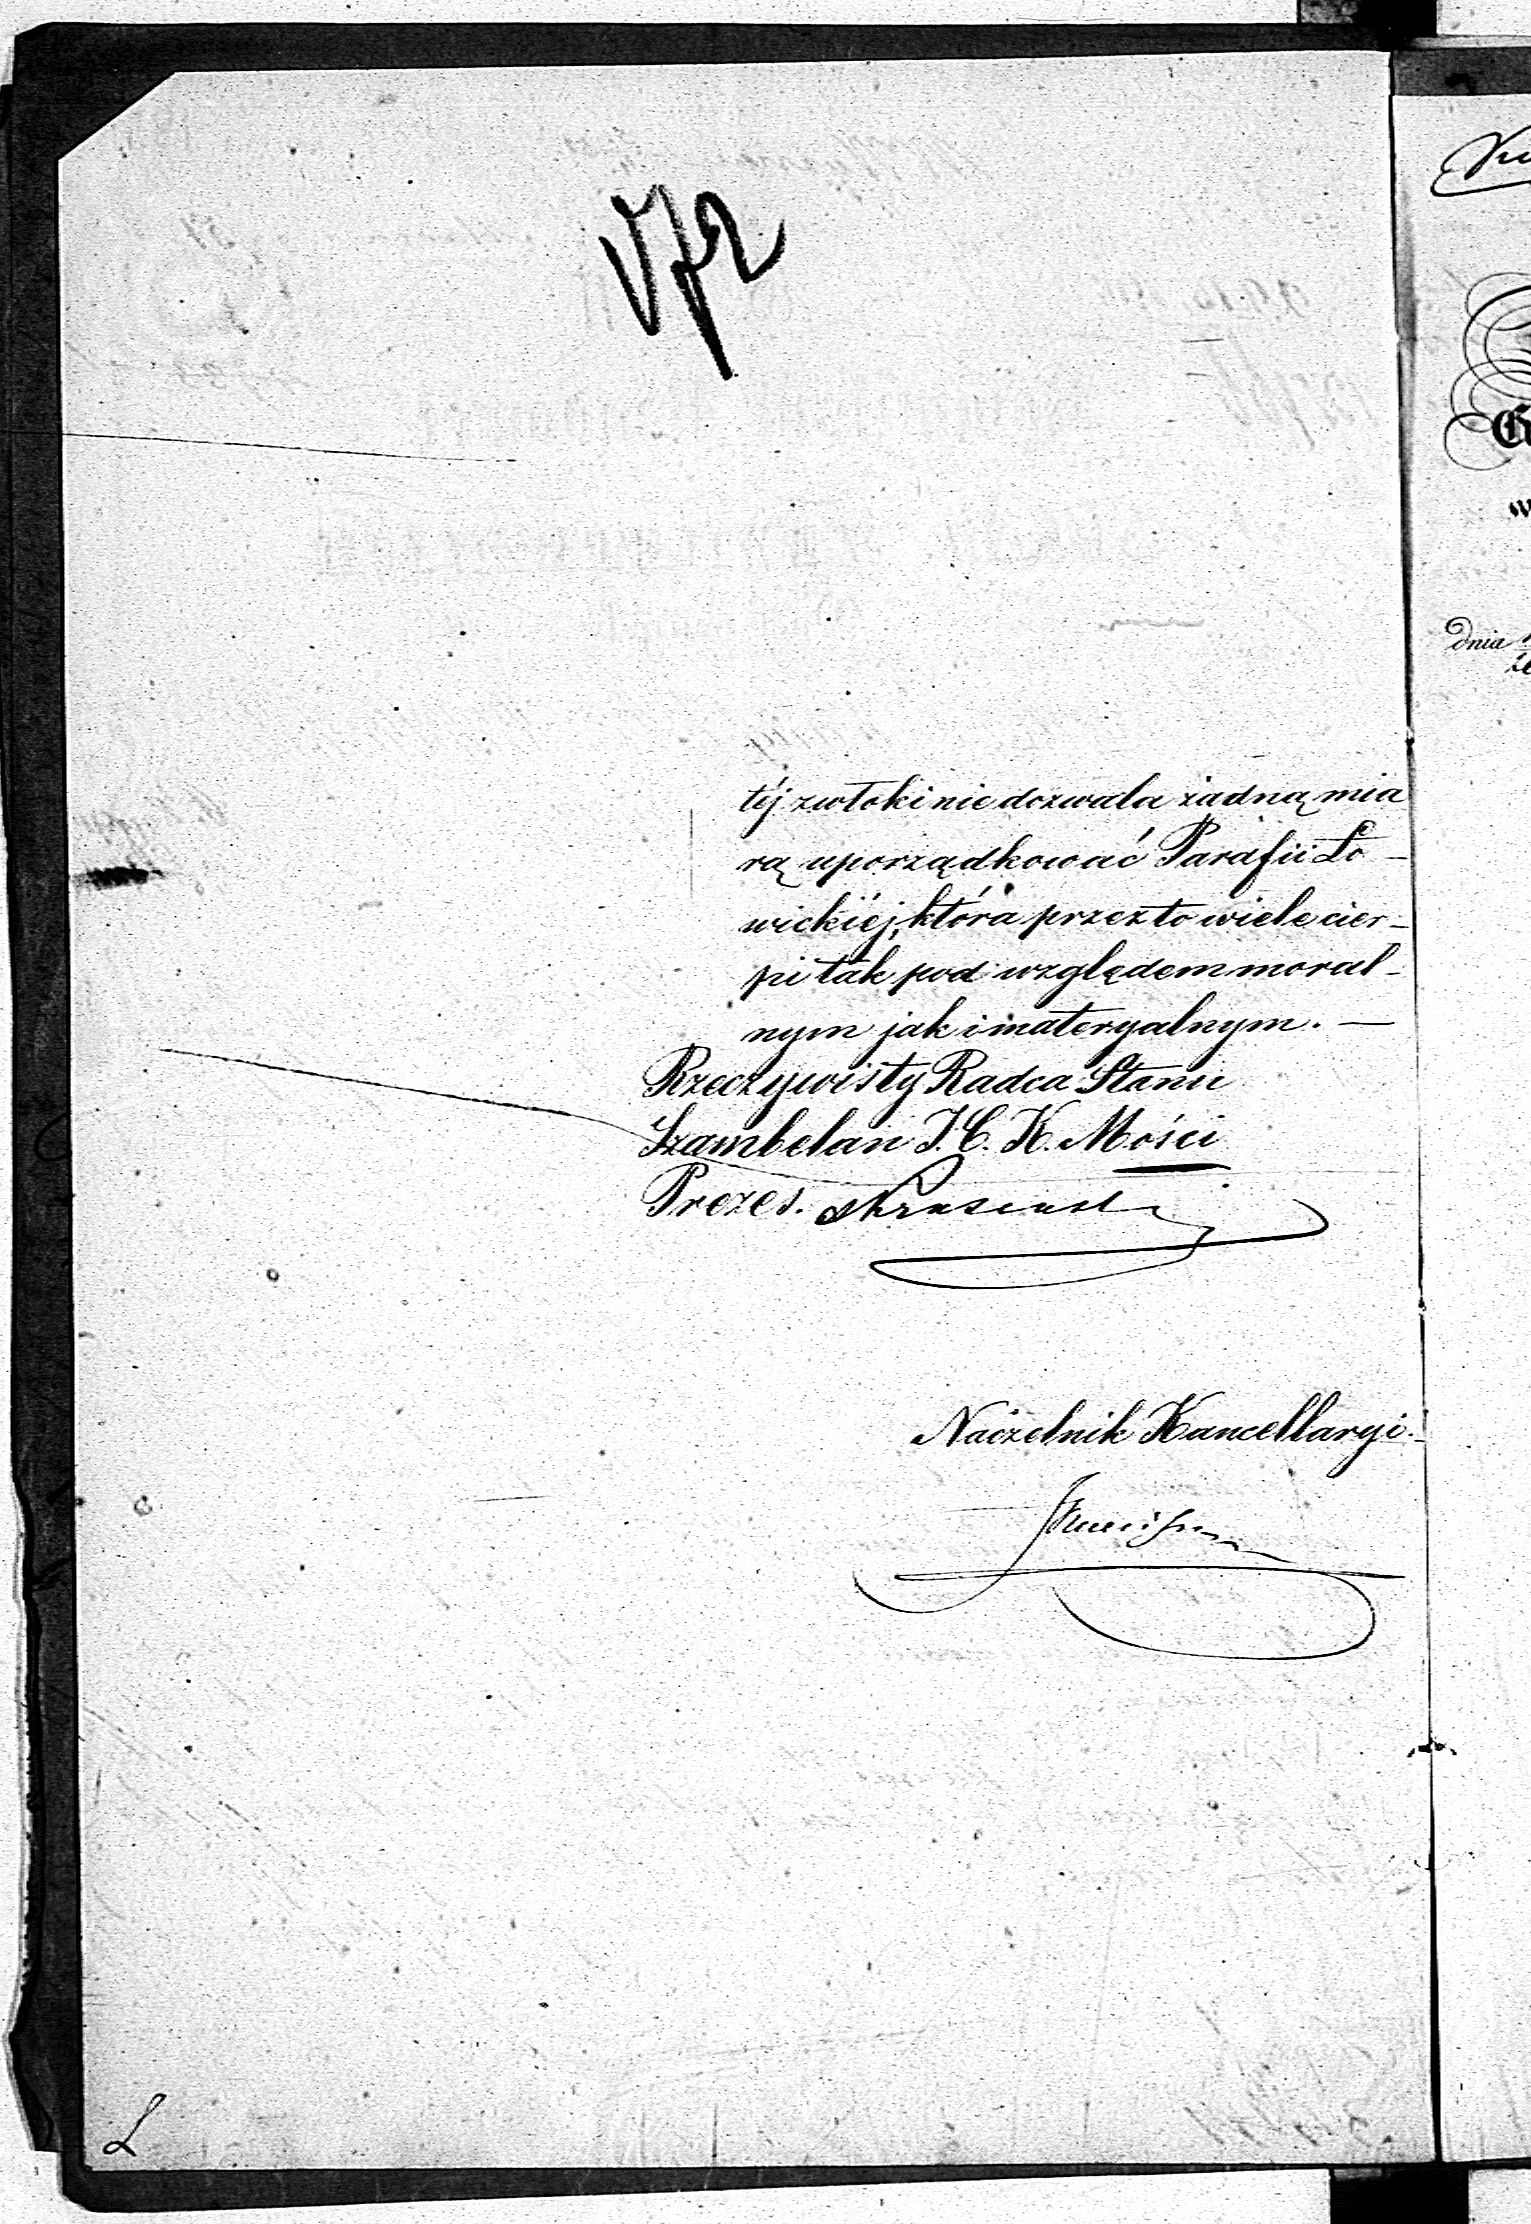 téj zwłoki nie dozwala żadną mia
rą uporządkować Parafii Ło-
wickiéj, która przez to wiele cier-
pi tak pod względem moral-
nym jak i materyalnym. —
Rzeczywisty Radca Stanu
Szambelan J. C. K. Mości
Prezes.
Naczelnik Kancellaryi.
L
Dnia